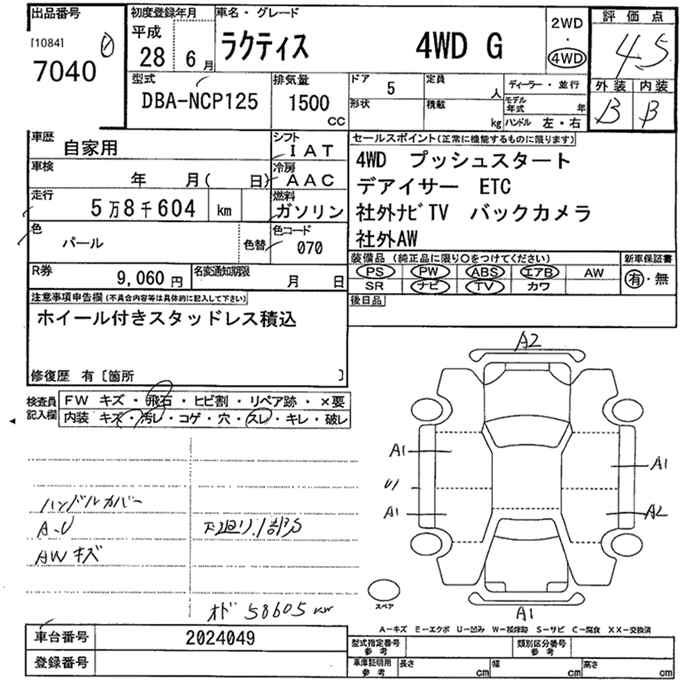 出品番号
[1084]
7040
初度登録年月
平成
28 6月
車名・グレード
ラクティス 4WD G
2WD
・
4WD
評価点
4.5
外装 内装
B B
型式
DBA-NCP125
排気量
1500
CC
ドア
5
定員
人
形状
積載
kg
ディーラー・並行
モデル年式
年
ハンドル 左・右
車歴
自家用
シフト
IAT
車検
年 月( 日)
冷房
AAC
走行
5万8千604 km
燃料
ガソリン
色
パール
色替
色コード
070
R券
9,060円
名変通知期限
月 日
セールスポイント(正常に機能するものに限ります)
4WD プッシュスタート
デアイサー ETC
社外ナビTV バックカメラ
社外AW
装備品 (純正品に限り○をつけてください)
新車保証書
PS PW ABS エアB AW
SR ナビ TV カワ
有・無
後日品
注意事項申告欄(不具合内容等は具体的に記入して下さい)
ホイール付きスタッドレス積込
修復歴 有〔箇所 〕
検査員
記入欄
FW キズ・飛石・ヒビ割・リペア跡・×要
内装 キズ・汚レ・コゲ・穴・スレ・キレ・破レ
ハンドルカバー
A-U
AWキズ
下廻り.1部S
オド 58605 km
A2
A1
A1
U1
A1
A2
A1
スペア
A-キズ E-エクボ U-凹み W-補修跡 S-サビ C-腐食 XX-交換済
車台番号
2024049
登録番号
型式指定番号
参考
類別区分番号
参考
車庫証明用
参考
長さ cm
幅 cm
高さ cm